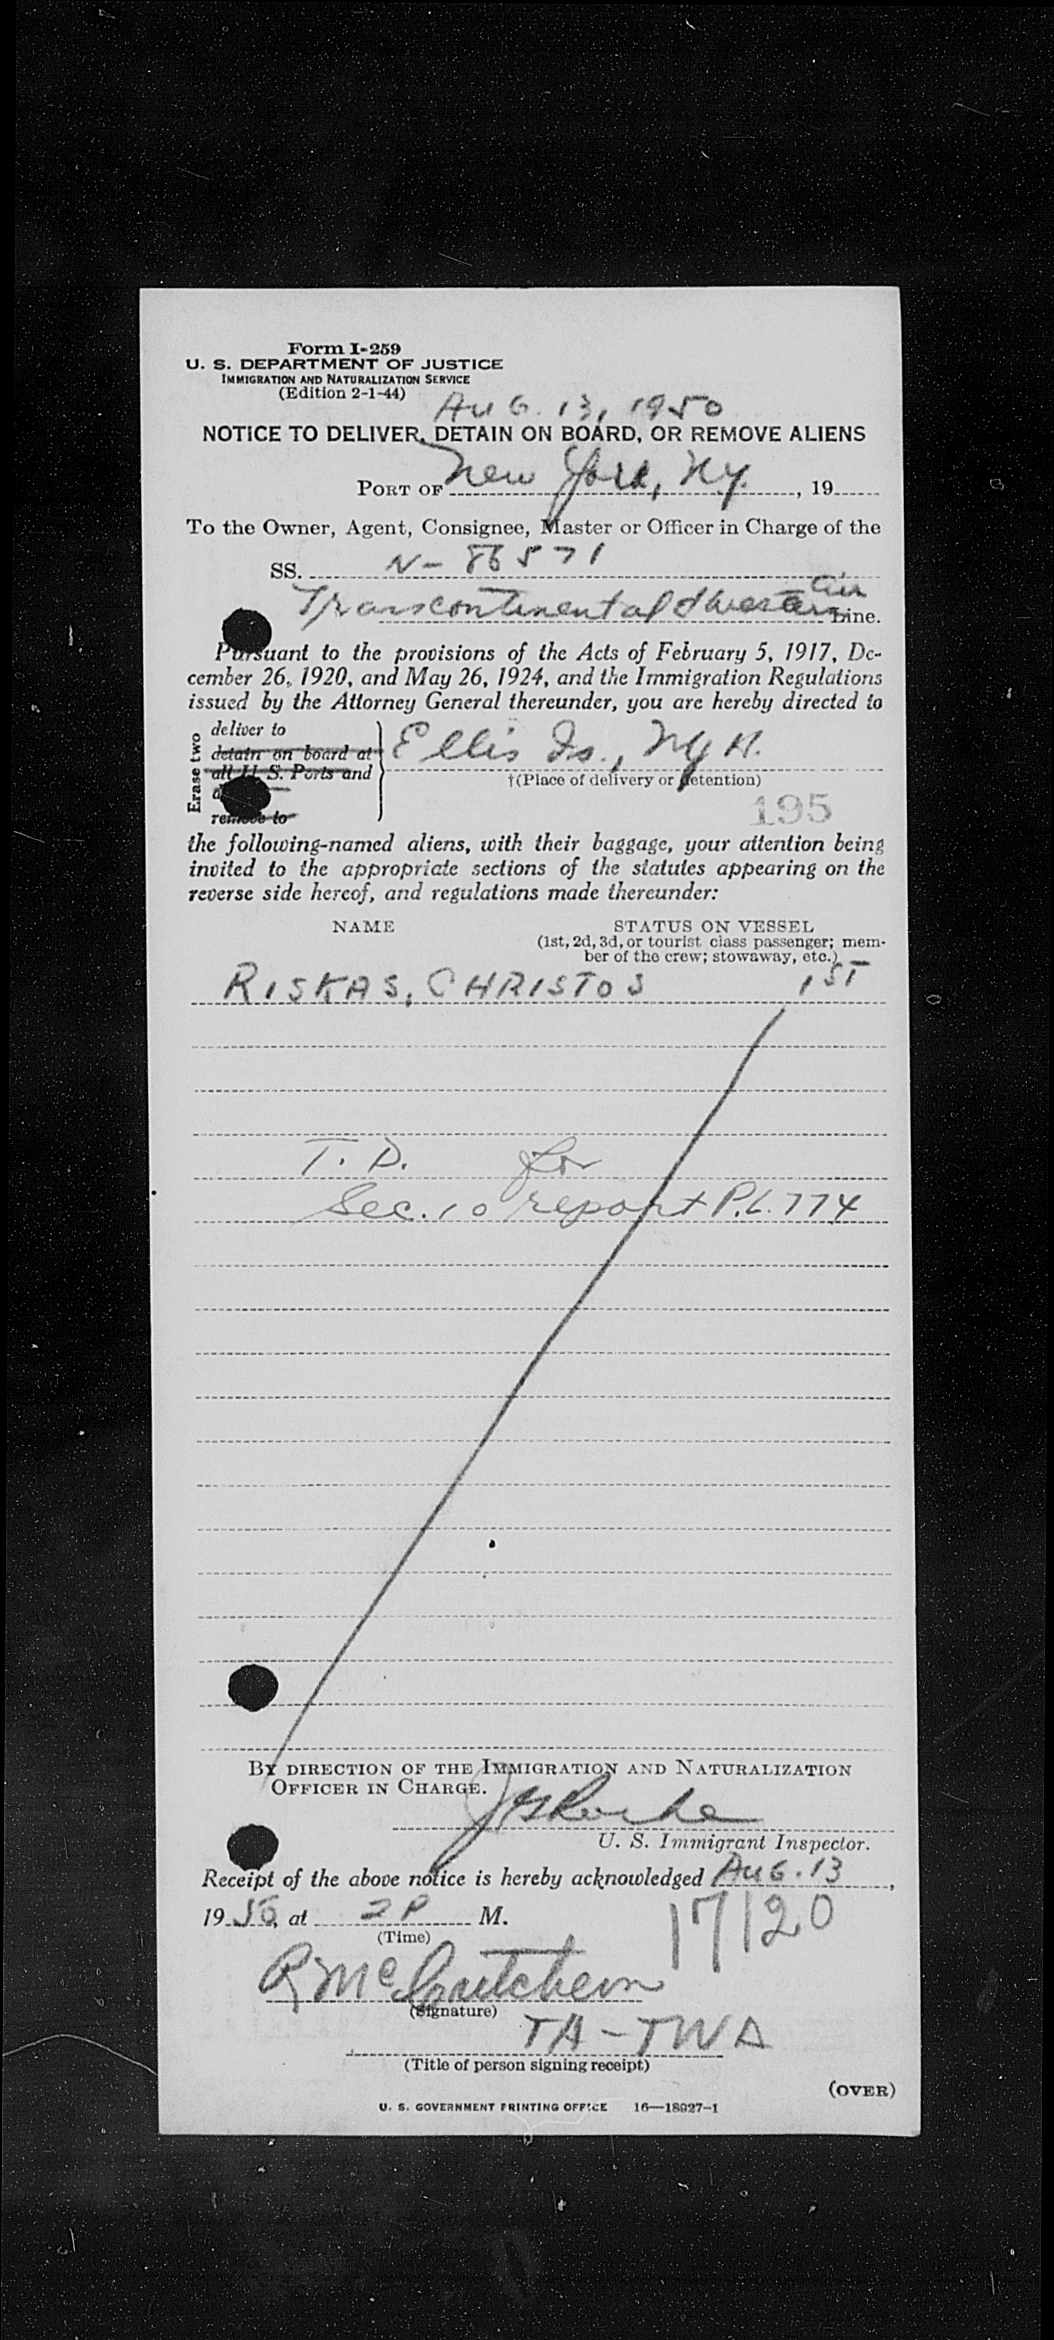 Form I-259
U. S. DEPARTMENT OF JUSTICE
IMMIGRATION AND NATURALIZATION SERVICE
(Edition 2-1-44)
AUG. 13, 1950
NOTICE TO DELIVER, DETAIN ON BOARD, OR REMOVE ALIENS
PORT OF New York, N.Y. , 19
To the Owner, Agent, Consignee, Master or Officer in Charge of the
SS. N-86571
Transcontinental & Western Air Line.
Pursuant to the provisions of the Acts of February 5, 1917, De-
cember 26, 1920, and May 26, 1924, and the Immigration Regulations
issued by the Attorney General thereunder, you are hereby directed to
Erase two
deliver to
detain on board at
all U. S. Ports and
remove to
Ellis Is., NYH.
†(Place of delivery or detention)
195
the following-named aliens, with their baggage, your attention being
invited to the appropriate sections of the statutes appearing on the
reverse side hereof, and regulations made thereunder:
NAME STATUS ON VESSEL
(1st, 2d, 3d, or tourist class passenger; mem-
ber of the crew; stowaway, etc.)
RISKAS, CHRISTOS 1ST
T. D. for
Sec. 10 report P.L. 774
BY DIRECTION OF THE IMMIGRATION AND NATURALIZATION
OFFICER IN CHARGE.
U. S. Immigrant Inspector.
Receipt of the above notice is hereby acknowledged AUG. 13 ,
19 50, at 2 P M.
(Time)
17120
R McCutcheon
(Signature)
TA-TWA
(Title of person signing receipt)
(OVER)
U. S. GOVERNMENT PRINTING OFFICE 16—18927-1